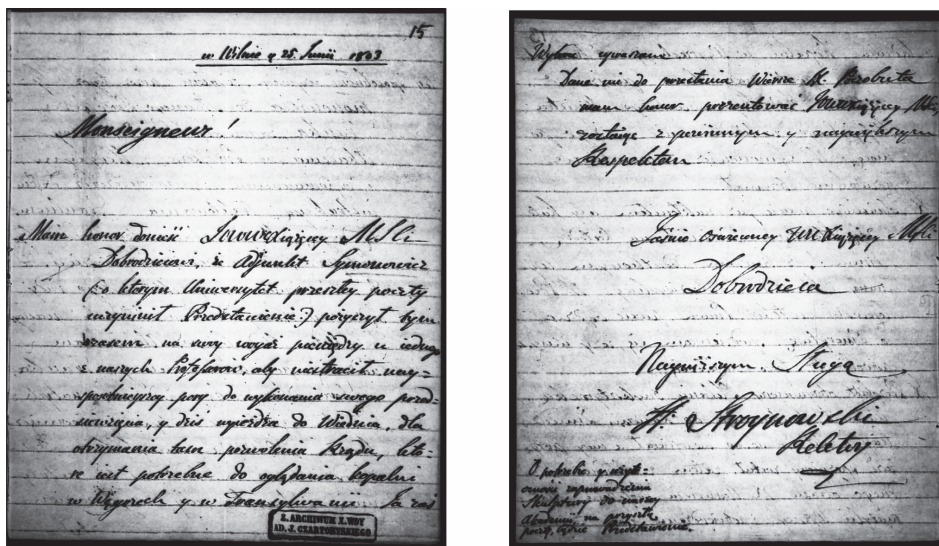 15
w Wilnie 25. Junii 1803
Monseigneur!
Mam honor donieść Jaśnie Xiążęcey Mści
Dobrodzieiowi, że Adjunkt Symonowicz
(:o którym Uniwersytet przeszłey poczty
uczynił Przedstawienie:) pożyczył tym
czasem na swoy wyiazd pieniędzy u iednego
z naszych Professorów, aby nie stracił nay-
sposobnieyszey pory do wykonania swego przed-
sięwzięcia, y dziś wyieżdża do Wiednia, dla
otrzymania tam pozwolenia Rządu, któ-
re iest potrzebne do oglądania kopalni
w Węgrzech y w Transylwanii. Ja zaś
Z. ARCHIWUM X. WDY
AD. J. CZARTORYSKIEGO
Dane mi do przesłania Wiersze
mam honor prezentować
zostaiąc z powinnym y naywyższym
Respektem
Jaśnie Oświeconey Xiążęcey Mści
Dobrodzieia
Nayniższym Sługą
H. Stroynowski
Rektor
O potrzebie y użyte-
czności zaprowadzenia
Skulptury do naszey
Akademii, na przyszłą
pocztę będzie Przedstawienie.